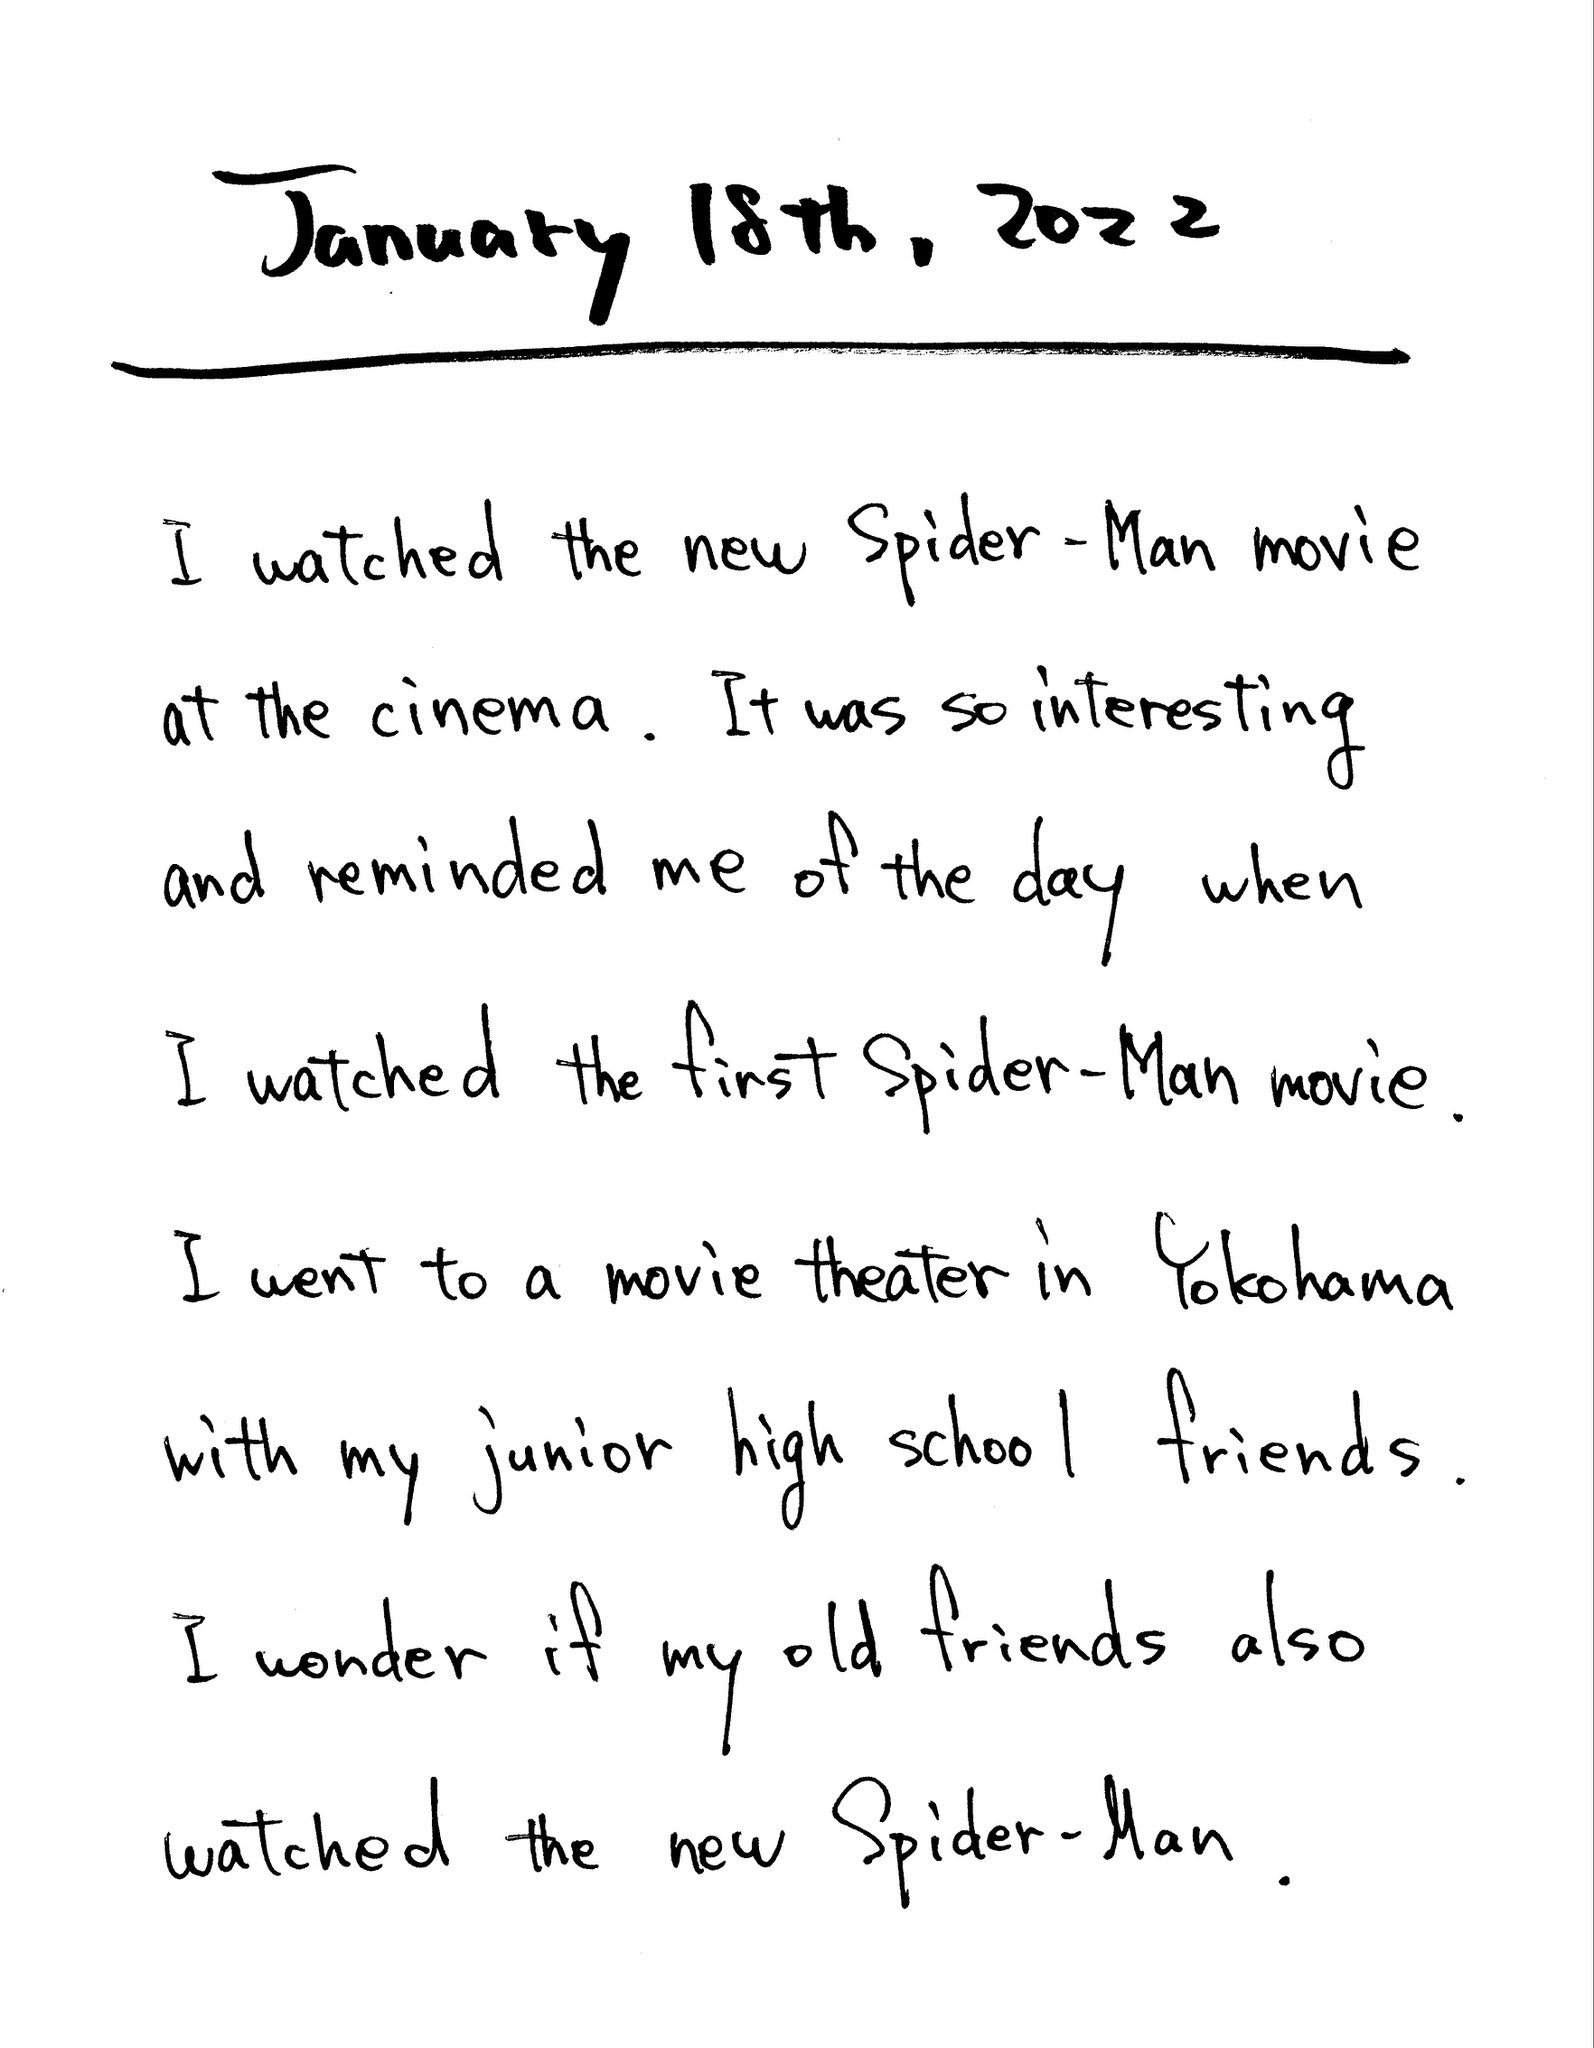 January 18th, 2022
I watched the new Spider-Man movie
at the cinema. It was so interesting
and reminded me of the day when
I watched the first Spider-Man movie.
I went to a movie theater in Yokohama
with my junior high school friends.
I wonder if my old friends also
watched the new Spider-Man.